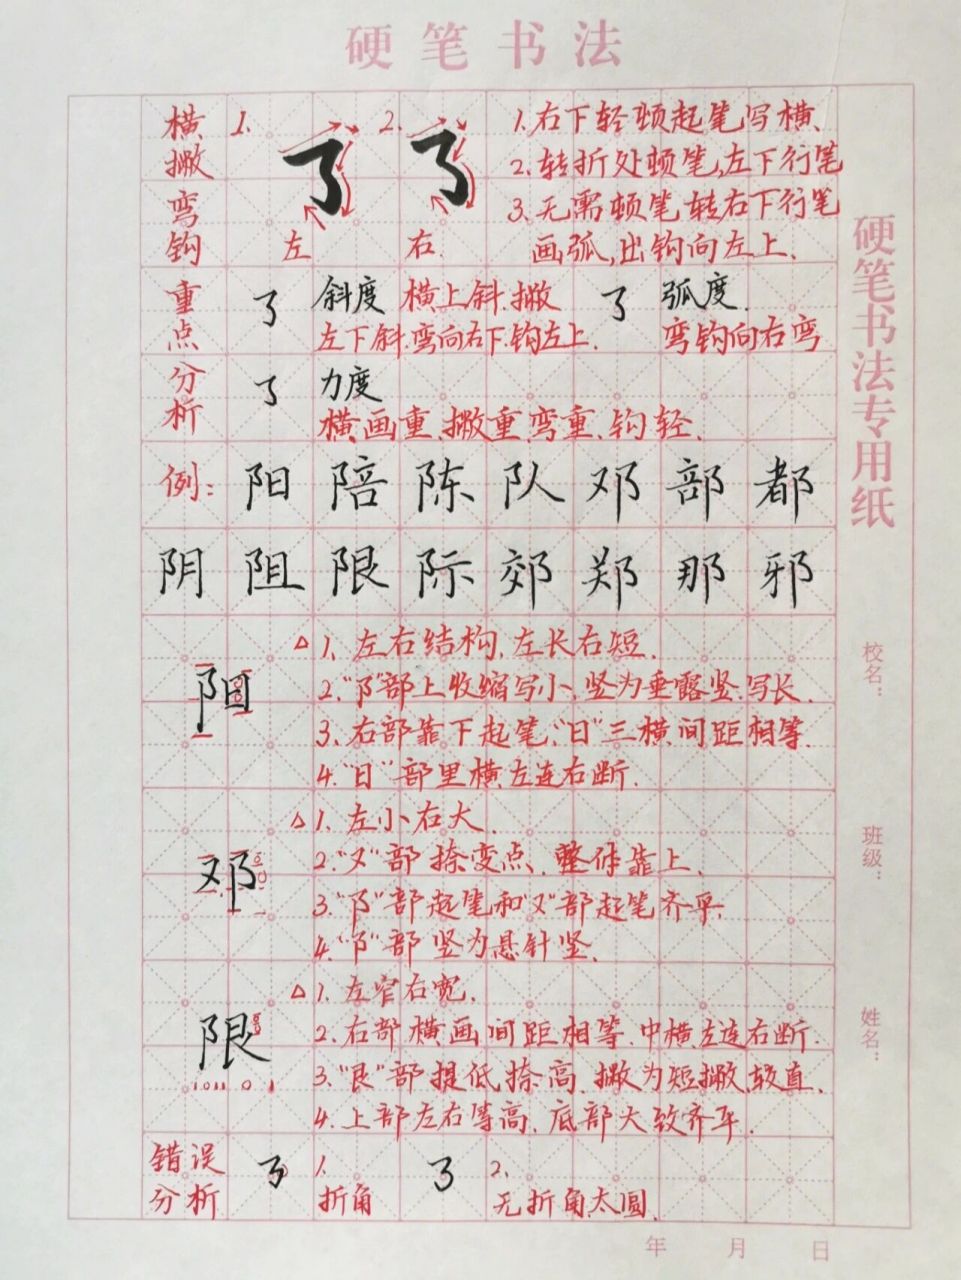 硬笔书法
横撇弯钩
1.
左
2.
右
1.右下轻顿起笔,写横、
2.转折处顿笔,左下行笔
3.无需顿笔转右下行笔
画弧,出钩向左上.
重点分析
斜度 横上斜.撇
左下斜.弯向右下,钩左上.
弧度.
弯钩向右弯
力度
横画重、撇重、弯重、钩轻、
例: 阳 陪 陈 队 邓 部 都
阴 阻 限 际 郊 郑 那 邪
阳
△1、左右结构,左长右短.
2."阝"部上收缩写小、竖为垂露竖.写长.
3、右部靠下起笔,"日"三横间距相等.
4."日"部里横左连右断.
邓
△1、左小右大.
2."又"部捺变点、整体靠上.
3."阝"部起笔和"又"部起笔齐平.
4."阝"部竖为悬针竖.
限
△1、左窄右宽.
2.右部横画间距相等.中横左连右断.
3."艮"部提低捺高.撇为短撇,较直.
4.上部左右等高、底部大致齐平.
错误分析
1.
折角
2.
无折角太圆.
硬笔书法专用纸
校名：
班级：
姓名：
年 月 日